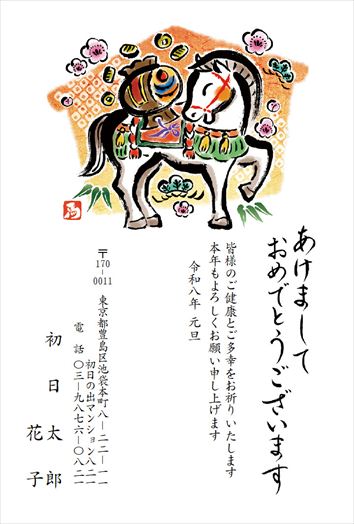 あけまして
おめでとうございます
皆様のご健康とご多幸をお祈りいたします
本年もよろしくお願い申し上げます
令和八年 元旦
〒170-0011
東京都豊島区池袋本町八-二二-一一
初日の出マンション八二一
電話 〇三-九八七六-〇八二一
初日 太郎
花子